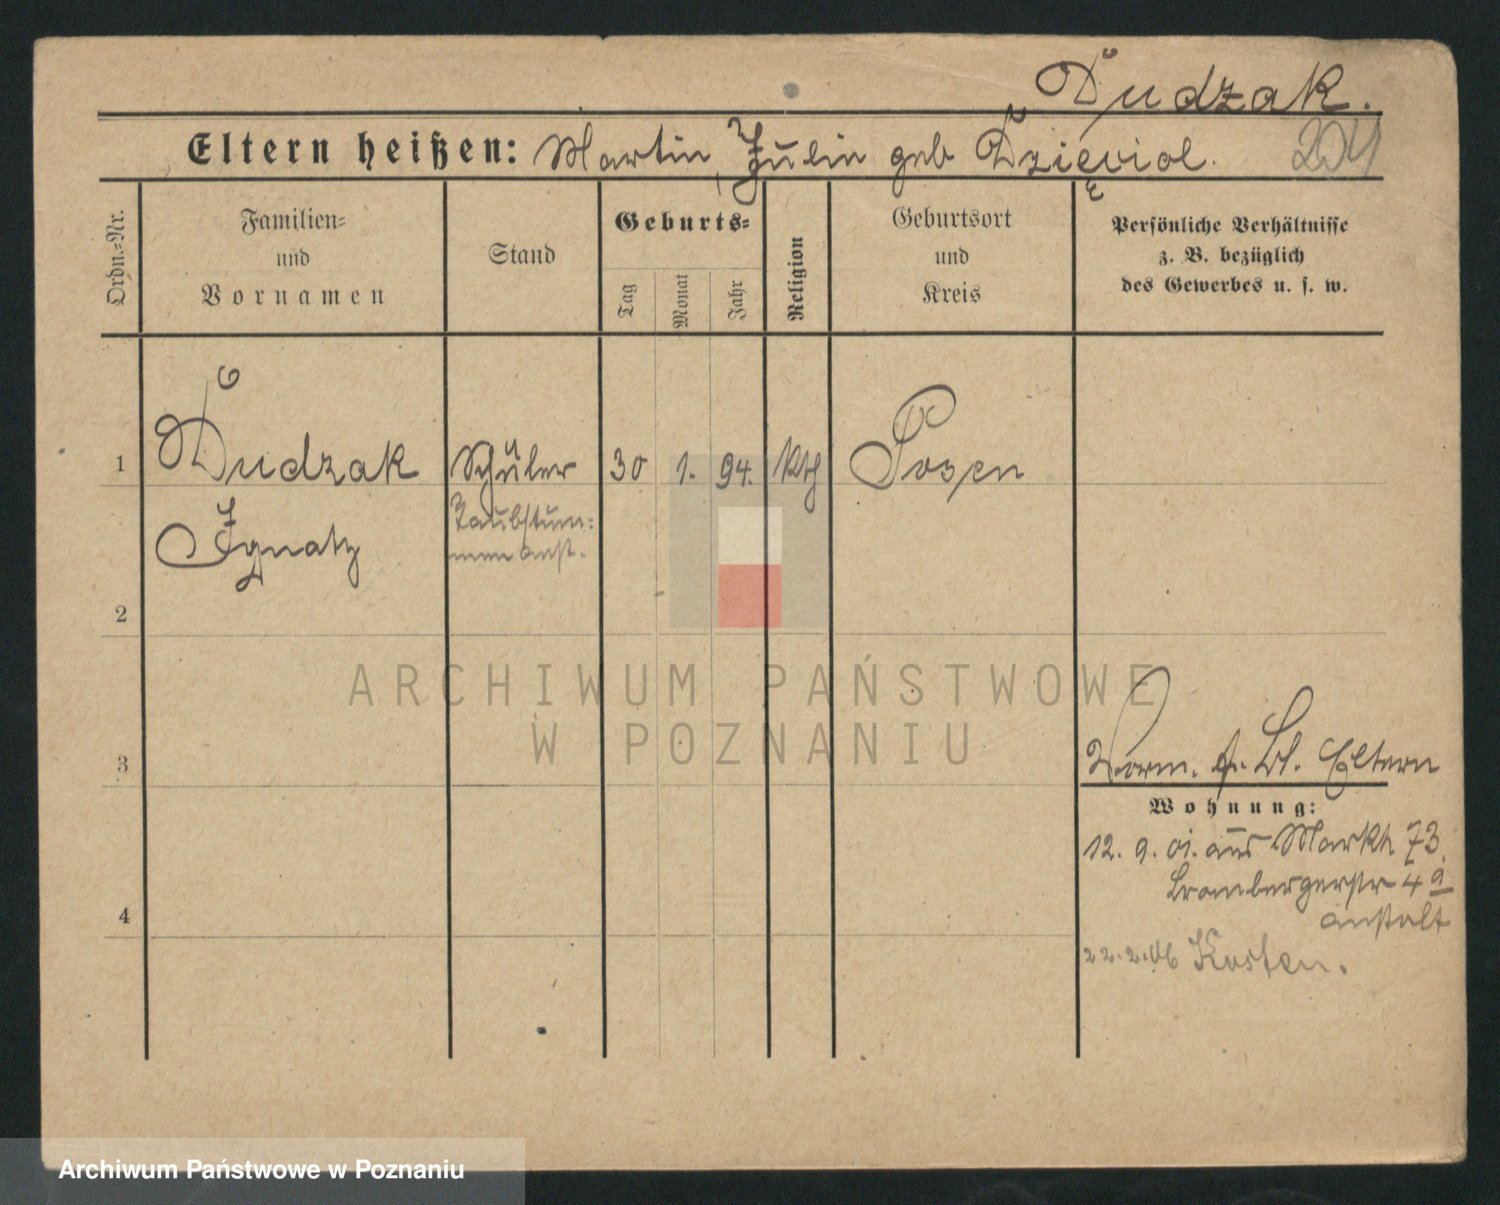 Dudzak.
Eltern heißen: Martin, Julie geb Dzieciol. 204
Ordn.=Nr.
Familien=
und
Vornamen
Stand
Geburts=
Tag
Monat
Jahr
Religion
Geburtsort
und
Kreis
Persönliche Verhältnisse
z. B. bezüglich
des Gewerbes u. s. w.
1 Dudzak Schüler 30 1. 94. kth Posen
Taubstum=
men anst.
Ignatz
2
ARCHIWUM PAŃSTWOWE
W POZNANIU
3
Eltern
Wohnung:
12. 9. 01. aus Markt 73.
Brombergerstr 4 a
anstalt
4
22.2.06 Kosten.
Archiwum Państwowe w Poznaniu